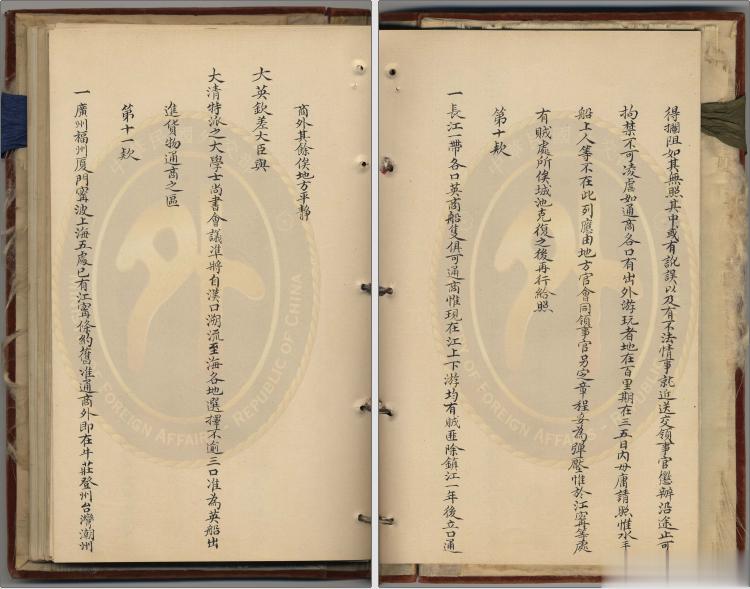 得攔阻如其無照其中或有訛誤以及有不法情事就近送交領事官懲辦沿途止可
拘禁不可凌虐如通商各口有出外游玩者地在百里期在三五日內毋庸請照惟水手
船上人等不在此列應由地方官會同領事官另定章程妥為彈壓惟於江寧等處
有賊處所俟城池克復之後再行給照
第十款
一長江一帶各口英商船隻俱可通商惟現在江上下游均有賊匪除鎮江一年後立口通
商外其餘俟地方平靜
大英欽差大臣與
大清特派之大學士尚書會議准將自漢口溯流至海各地選擇不逾三口准為英船出
進貨物通商之區
第十一款
一廣州福州厦門寧波上海五處已有江寧條約舊准通商外即在牛莊登州台灣潮州
FOREIGN AFFAIRS - REPUBLIC OF CHINA
OF FOREIGN AFFAIRS - REPUBLIC OF